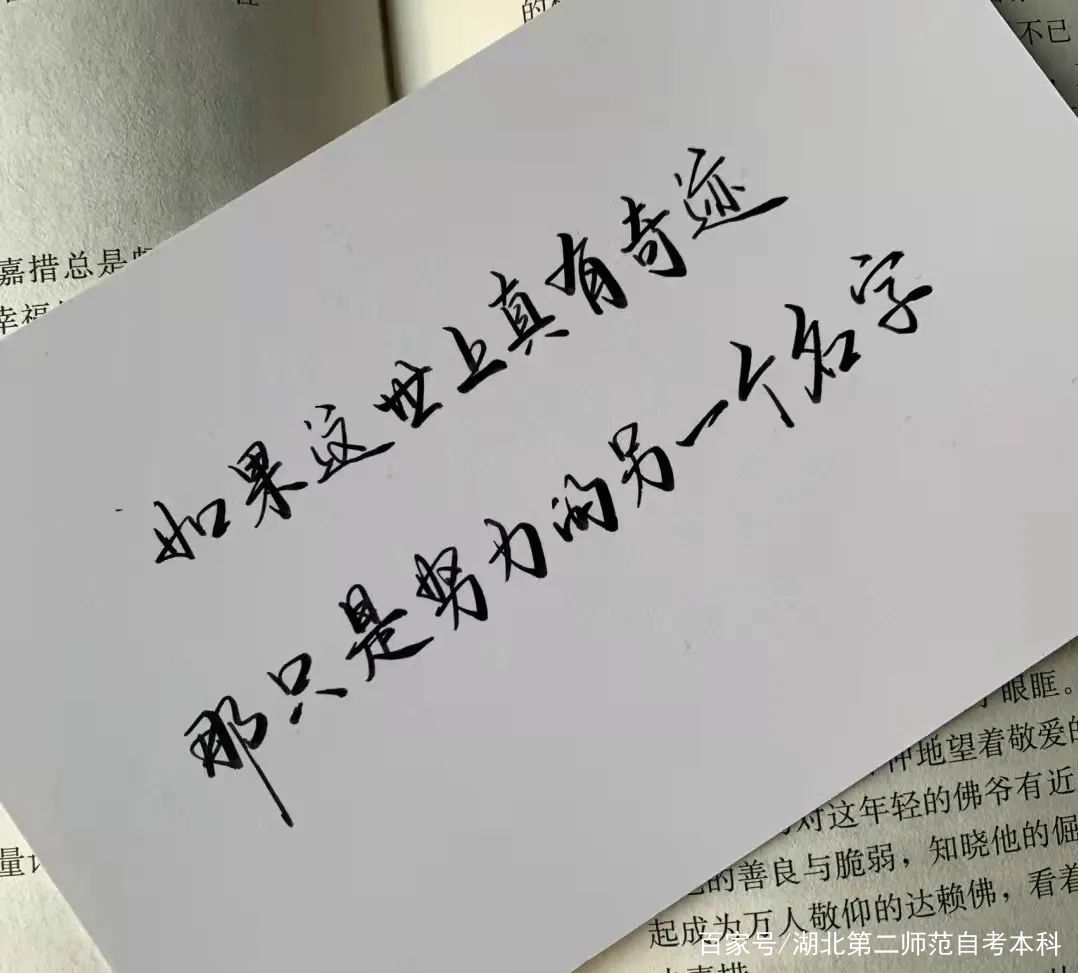 的
不已
嘉措总是
幸福
如果这世上真有奇迹
那只是努力的另一个名字
眼眶。
地望着敬爱的
对这年轻的佛爷有近
的善良与脆弱，知晓他的倔
起成为万人敬仰的达赖佛，看着
量
百家号/湖北第二师范自考本科